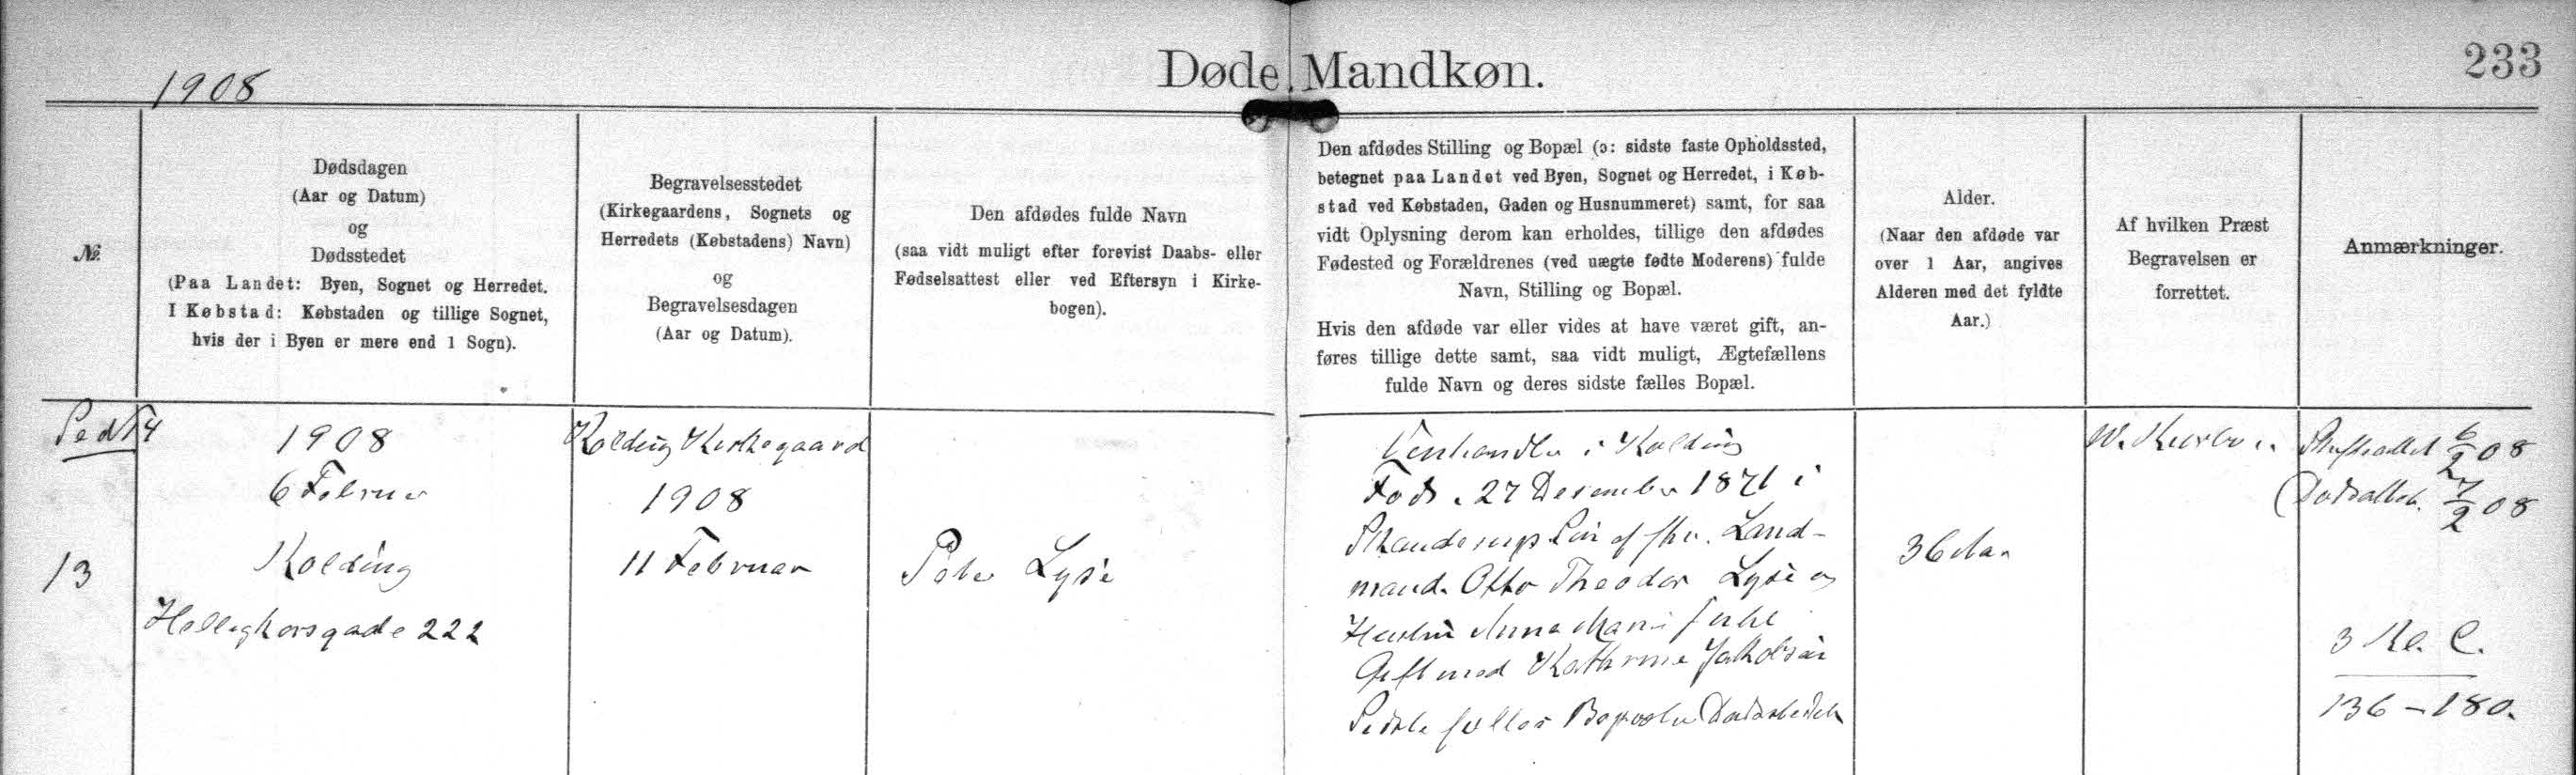 1908
Døde Mandkøn.
233
№
Dødsdagen
(Aar og Datum)
og
Dødsstedet
(Paa Landet: Byen, Sognet og Herredet.
I Købstad: Købstaden og tillige Sognet,
hvis der i Byen er mere end 1 Sogn).
Begravelsesstedet
(Kirkegaardens, Sognets og
Herredets (Købstadens) Navn)
og
Begravelsesdagen
(Aar og Datum).
Den afdødes fulde Navn
(saa vidt muligt efter forevist Daabs- eller
Fødselsattest eller ved Eftersyn i Kirke-
bogen).
Den afdødes Stilling og Bopæl (ɔ: sidste faste Opholdssted,
betegnet paa Landet ved Byen, Sognet og Herredet, i Køb-
stad ved Købstaden, Gaden og Husnummeret) samt, for saa
vidt Oplysning derom kan erholdes, tillige den afdødes
Fødested og Forældrenes (ved uægte fødte Moderens) fulde
Navn, Stilling og Bopæl.
Hvis den afdøde var eller vides at have været gift, an-
føres tillige dette samt, saa vidt muligt, Ægtefællens
fulde Navn og deres sidste fælles Bopæl.
Alder.
(Naar den afdøde var
over 1 Aar, angives
Alderen med det fyldte
Aar.)
Af hvilken Præst
Begravelsen er
forrettet.
Anmærkninger.
13
1908
6 Februar
Kolding
Helligkorsgade 222
Kolding Kirkegaard
1908
11 Februar
Peter Lysé
Vinhandler i Kolding
Født 27 December 1871 i
Skanderup Søn af fhv. Land-
mand Otto Theodor Lysé og
Hustru Anna Marie Juhl
Gift med Kathrine Jakobsen
Sidste fælles Bopæl Dødsstedet
36 Aar
Skifteattest 6/2 08
Dødsattest 7/2 08
3 Kl. C.
136 – 180.